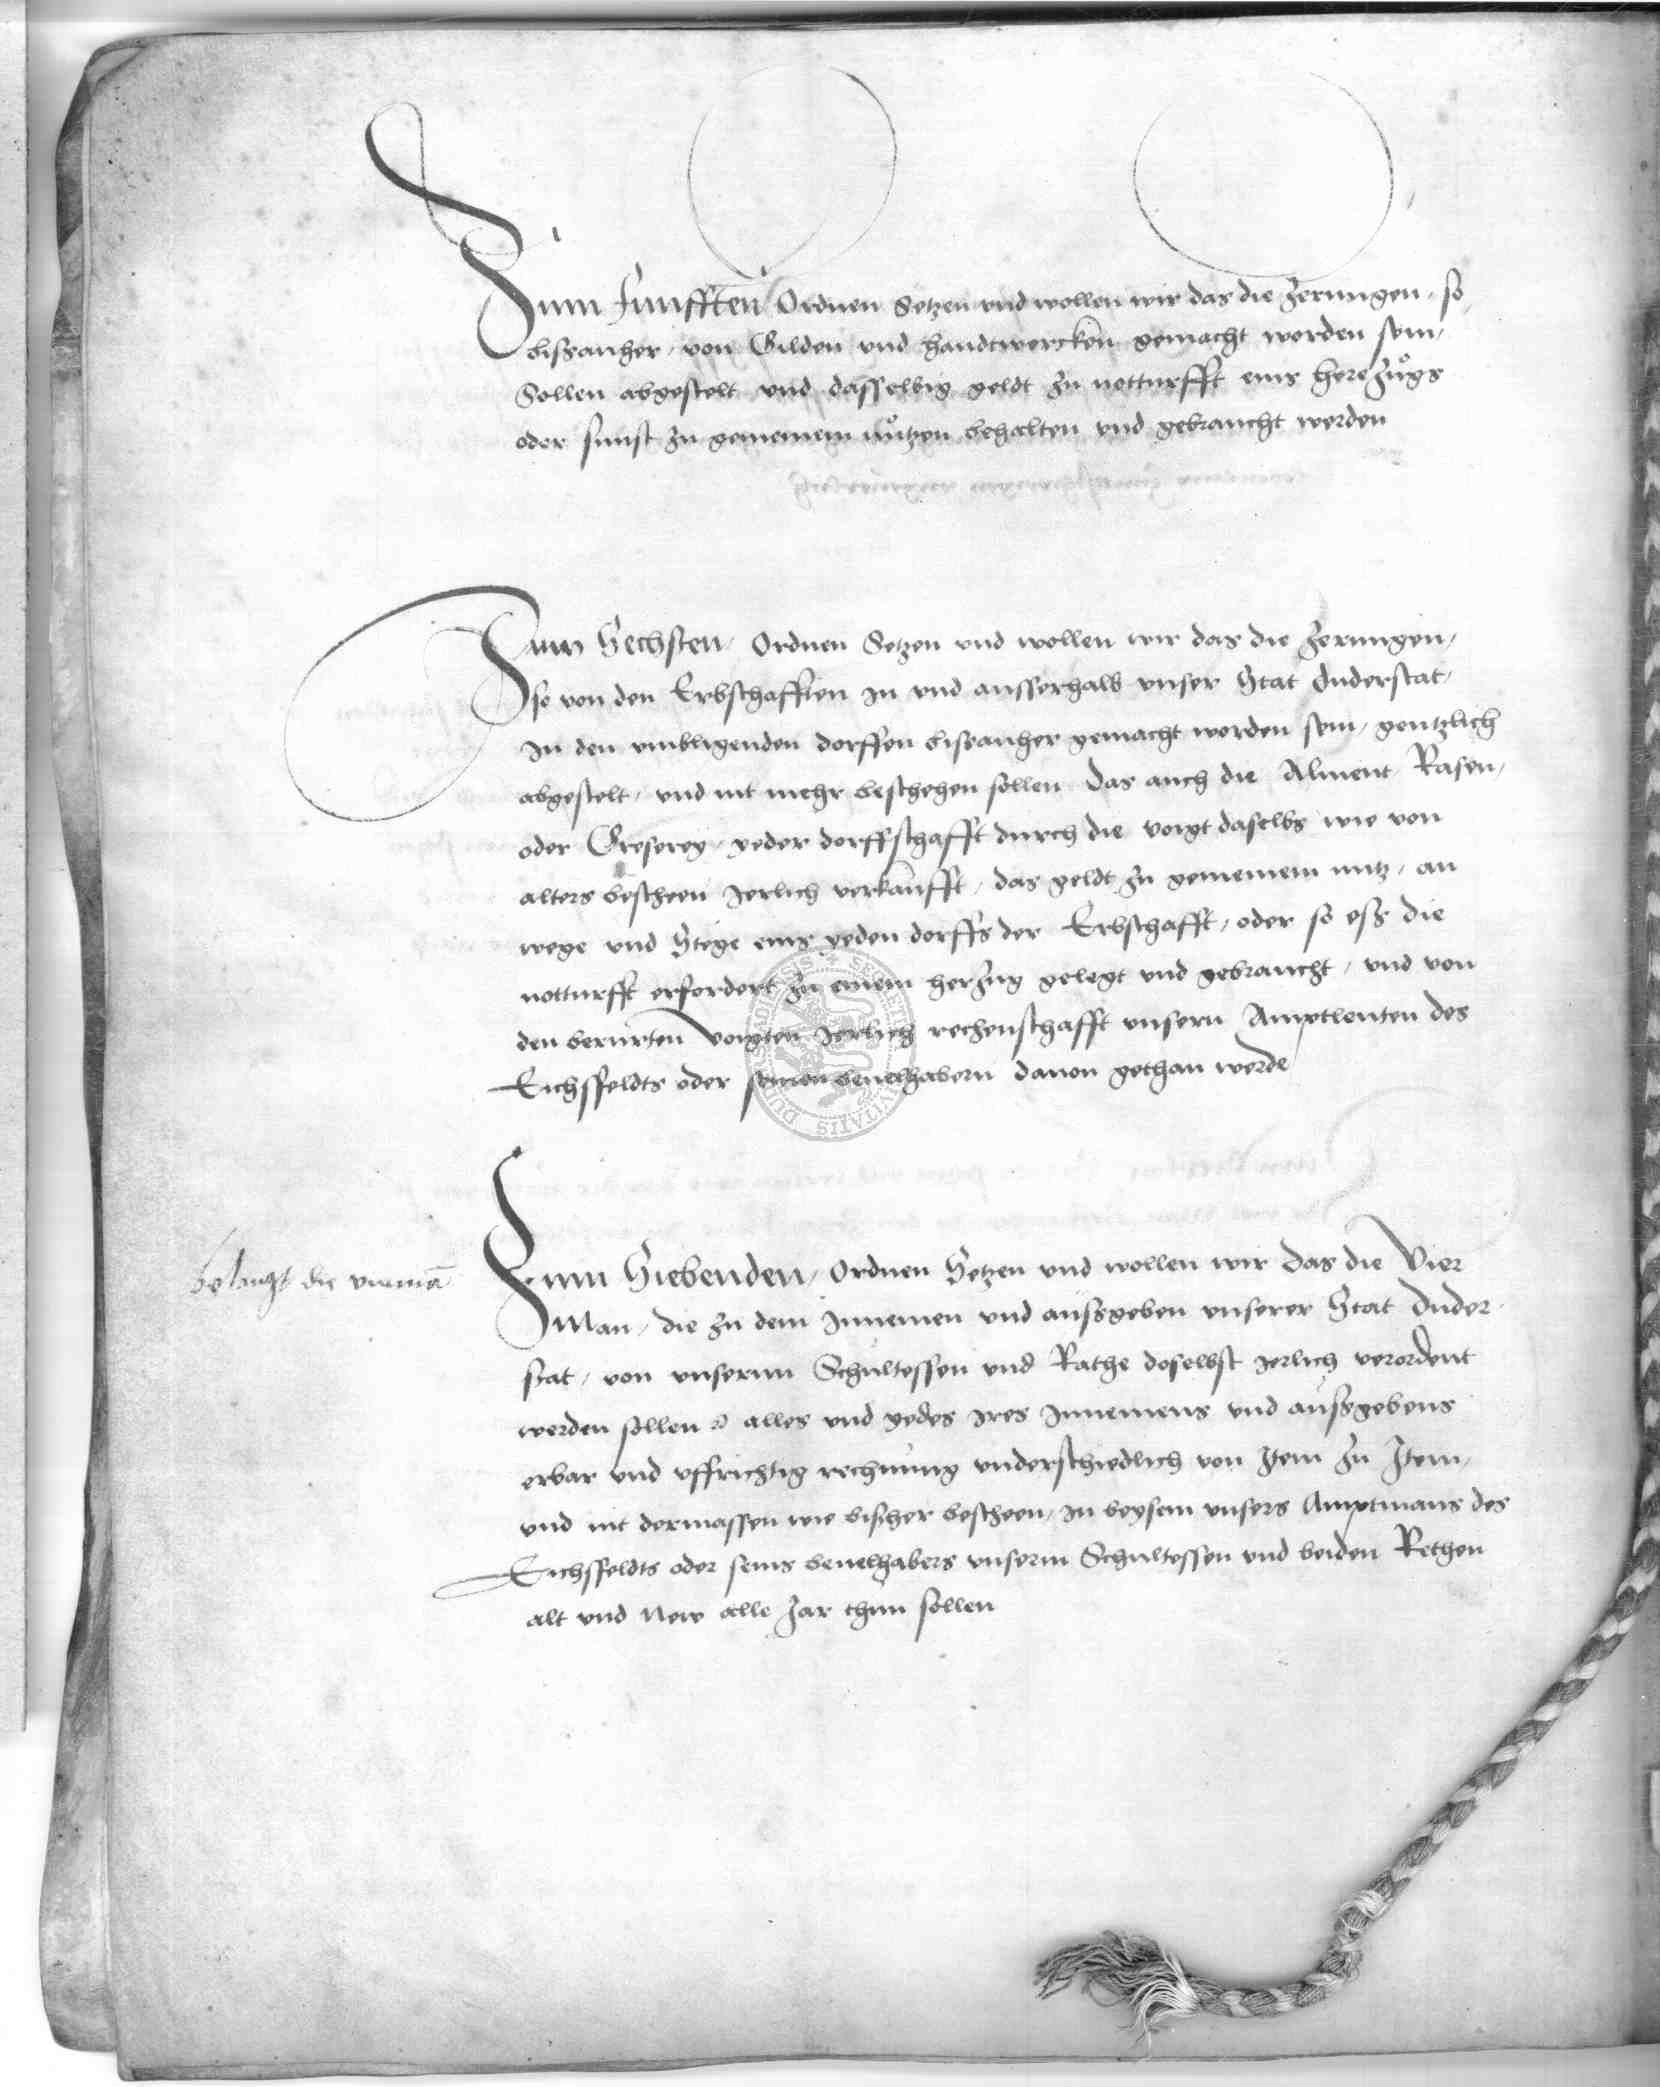 Zum Funfften Ordnen Setzen vnd wollen wir das die Zerungen / so
bissanher / von Gilden vnd handtwercken gemacht worden sein /
Sollen abgestelt vnd dasselbig geldt zu notturfft eins herezůgs
oder sunst zu gemeinem nůtzen behalten vnd gebraucht werden
Zum Sechsten / Ordnen Setzen vnd wollen wir das die Zerungen /
so von den Erbschafften in vnd ausserhalb vnser Stat Duderstat /
In den vmbligenden dorffen bissanher gemacht worden sein / gentzlich
abgestelt / vnd nit mehr beschehen sollen Das auch die Alment Rasen /
oder Greserey / yeder dorffschafft durch die voigt daselbs wie von
alters bescheen Jerlich verkaufft / das geldt zu gemeinem nutz / an
wege vnd Stege eins yeden dorffs der Erbschafft / oder so ess die
notturfft erfordert zu einem herzug gelegt vnd gebraucht / vnd von
den berurten Voigten Jerlich rechenschafft vnsern Amptleuten des
Eichsfeldts oder seinen beuelhabern dauon gethan werde
belangt die vierman
Zum Siebenden / Ordnen Setzen vnd wollen wir Das die Vier
Man / die zu dem Innemen vnd aussgeben vnserer Stat Duder
stat / von vnserm Schultessen vnd Rathe doselbst Jerlich verordent
werden sollen alles vnd yedes Ires Innemens vnd aussgebens
erbar vnd vffrichtig rechnung vnderschiedlich von Item zu Item /
vnd nit dermassen wie bissher bescheen / in beysein vnsers Amptmans des
Eichsfeldts oder seins beuelhabers vnserm Schultessen vnd beiden Rethen
alt vnd New alle Jar thun sollen